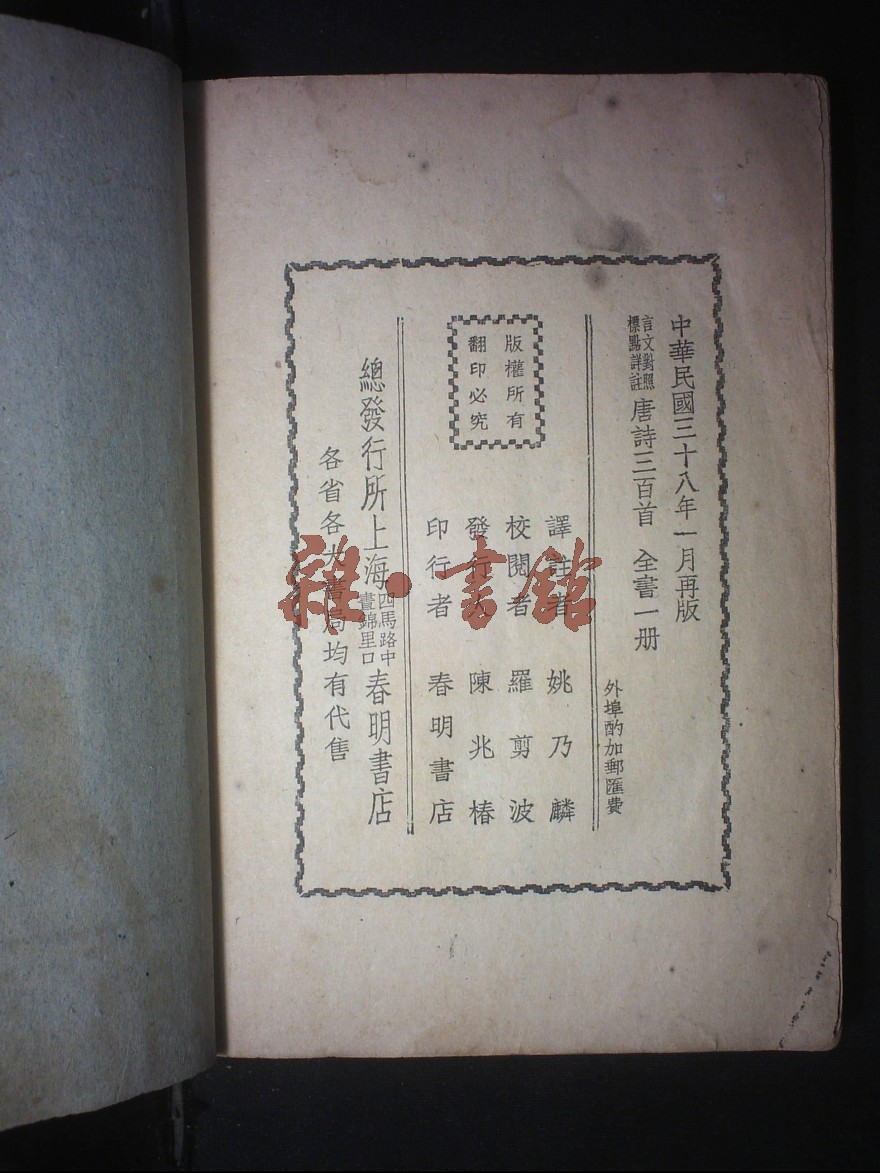 中華民國三十八年一月再版
言文對照
標點詳註
唐詩三百首 全書一册
外埠酌加郵匯費
版權所有
翻印必究
譯註者 姚乃麟
校閱者 羅剪波
發行人 陳兆椿
印行者 春明書店
總發行所上海四馬路中畫錦里口春明書店
各省各大書局均有代售
雜·書館